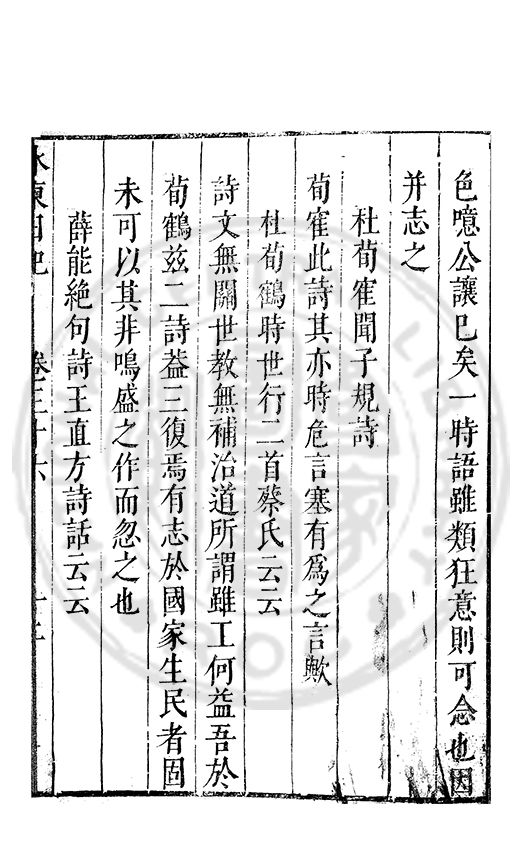 色噫公讓已矣一時語雖類狂意則可念也因
并志之
杜荀寉聞子規詩
荀寉此詩其亦時危言塞有爲之言歟
杜荀鶴時世行二首蔡氏云云
詩文無關世教無補治道所謂雖工何益吾於
荀鶴兹二詩葢三復焉有志於國家生民者固
未可以其非鳴盛之作而忽之也
薛能絶句詩王直方詩話云云
水東日記 卷三十六